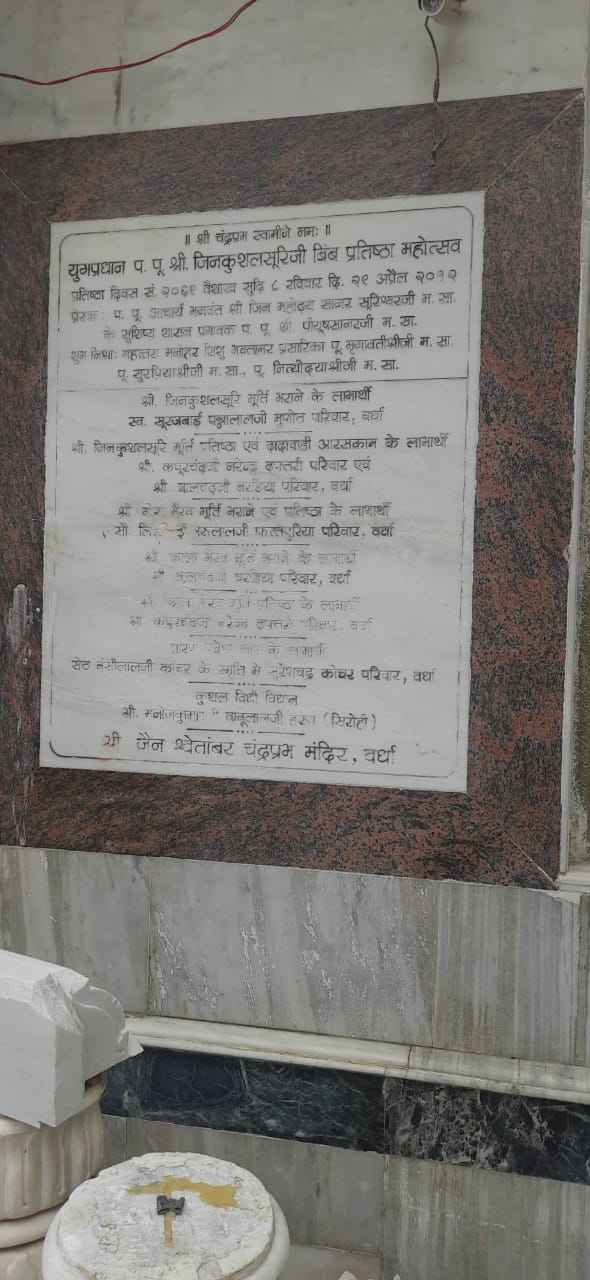 ॥ श्री चंद्रप्रभ स्वामीने नमः ॥
युगप्रधान प. पू. श्री. जिनकुशलसूरिजी बिंब प्रतिष्ठा महोत्सव
प्रतिष्ठा दिवस सं. २०६९ वैशाख सुदि ८ रविवार दि. २९ अप्रैल २०१२
प्रेरक: प. पू. आचार्य भगवंत श्री जिन महोदय सागर सूरिश्वरजी म. सा.
के सुशिष्य शासन प्रभावक प. पू. श्री. पीयूषसागरजी म. सा.
शुभ निश्रा: मनोहर शिशु प्रसारिका पू. मृगावतीश्रीजी म. सा.
पू. सुरप्रियाश्रीजी म. सा., पू. नित्योदयाश्रीजी म. सा.
श्री. जिनकुशलसूरि मूर्ति भराने के लाभार्थी
स्व. सूरजबाई पन्नालालजी मुणोत परिवार, वर्धा
श्री. जिनकुशलसूरि मूर्ति प्रतिष्ठा एवं दादावाडी आरसकाम के लाभार्थी
श्री. कपूरचंदजी नरेन्द्र दफ्तरी परिवार एवं
श्री बालचंदजी बरडिया परिवार, वर्धा
श्री गोरा भैरव मूर्ति भराने एवं प्रतिष्ठा के लाभार्थी
सौ फत्तेपुरिया परिवार, वर्धा
श्री काला भैरव मूर्ति भराने के लाभार्थी
श्री बालचंदजी बरडिया परिवार, वर्धा
श्री. काला भैरव मूर्ति प्रतिष्ठा के लाभार्थी
श्री कपूरचंदजी नरेन्द्र दफ्तरी परिवार, वर्धा
के लाभार्थी
सेठ बंसीलालजी कोचर के स्मृति मे सुरेशचंद्र कोचर परिवार, वर्धा
कुशल विधी विधान
श्री. बाबूलालजी हरण (सिरोही)
श्री जैन श्वेतांबर चंद्रप्रभ मंदिर, वर्धा